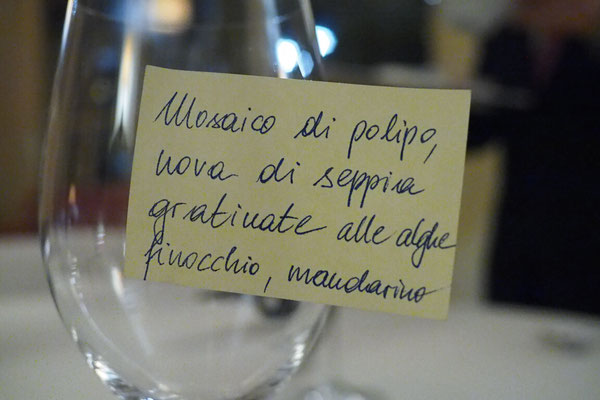 Mosaico di polipo,
uova di seppia
gratinate alle alghe
finocchio, mandarino